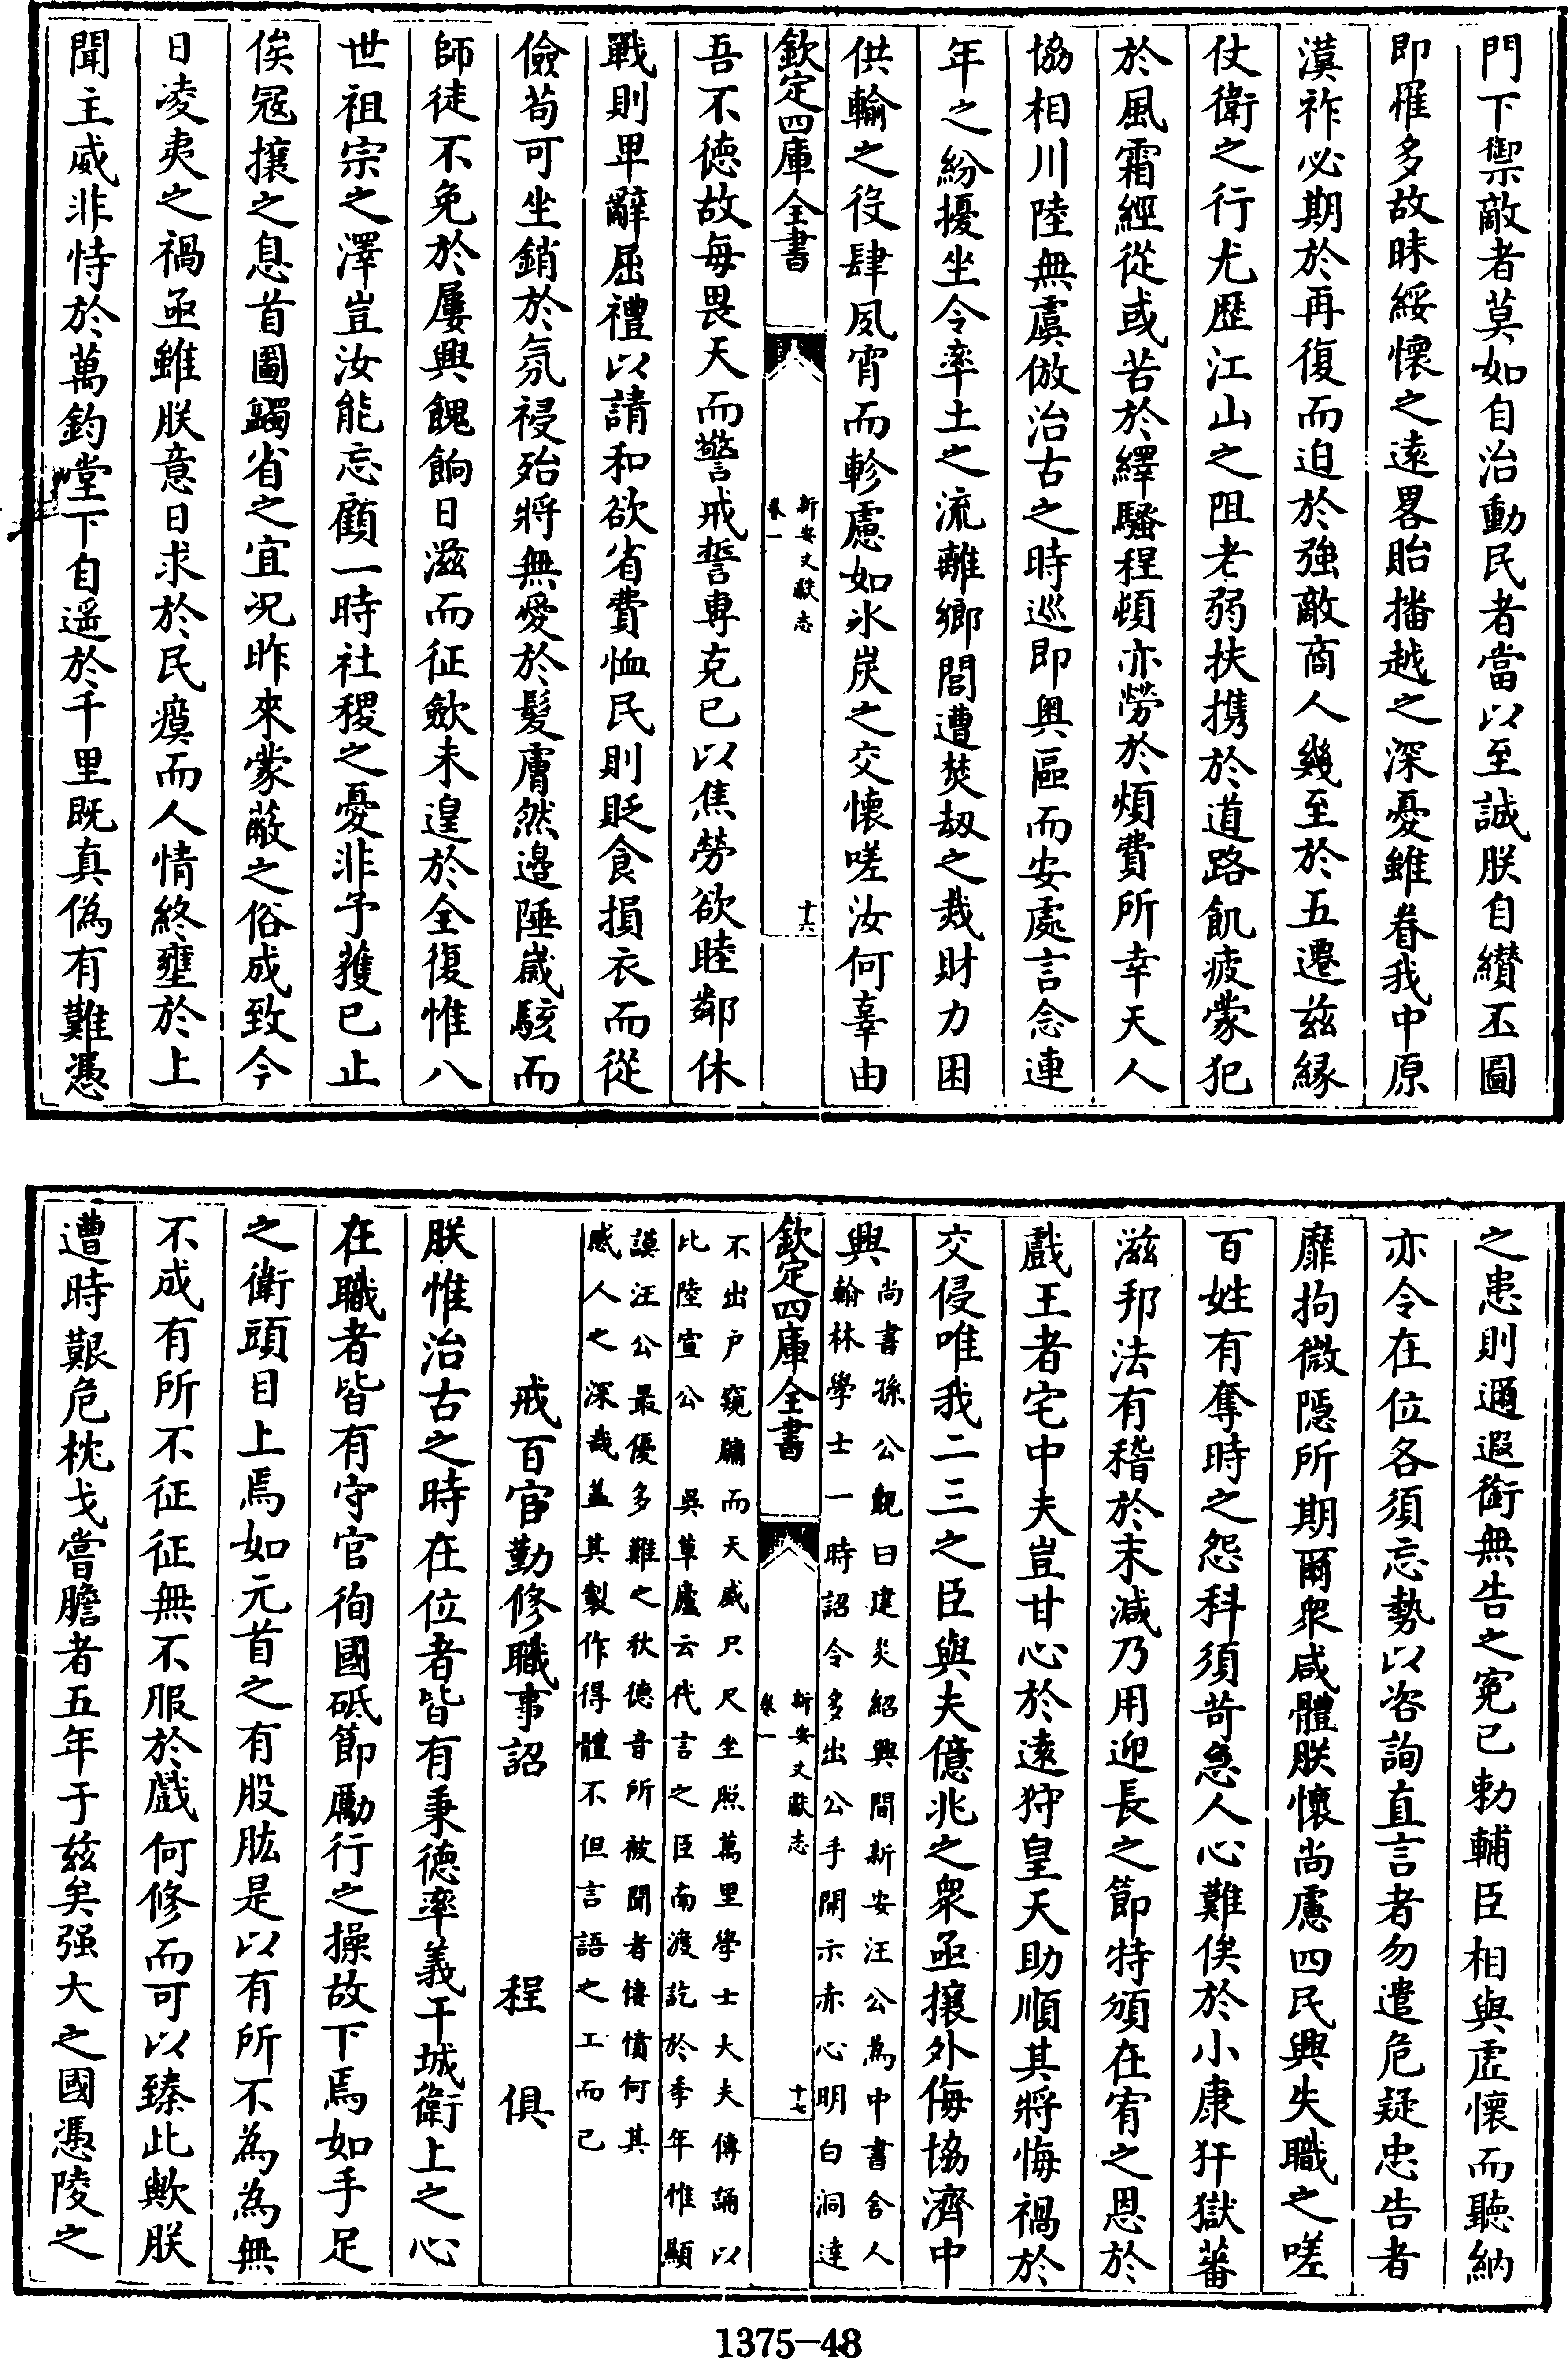 門下禦敵者莫如自治動民者當以至誠朕自纉丕圖
即罹多故昧綏懷之遠畧貽播越之深憂雖眷我中原
漠祚必期於再復而迫於強敵商人幾至於五遷茲緣
仗衛之行尤歷江山之阻老弱扶攜於道路飢疲蒙犯
於風霜經從或苦於繹騷程頓亦勞於煩費所幸天人
協相川陸無虞倣治古之時巡即奥區而安處言念連
年之紛擾坐令率土之流離鄉閭遭焚刼之烖財力困
供輸之役肆夙宵而軫慮如氷炭之交懷嗟汝何辜由
欽定四庫全書
新安文獻志
卷一
十六
吾不德故毎畏天而警戒誓専克已以焦勞欲睦鄰休
戰則卑辭屈禮以請和欲省費恤民則貶食損衣而從
儉茍可坐銷於氛祲殆將無愛於髮膚然邉陲歲駭而
師徒不免於屢興餽餉日滋而征歛未遑於全復惟八
世祖宗之澤豈汝能忘顧一時社稷之憂非予獲已止
俟冦攘之息首圖蠲省之宜况昨來蒙蔽之俗成致今
日凌夷之禍亟雖朕意日求於民瘼而人情終壅於上
聞主威非恃於萬鈞堂下自遥於千里既真偽有難憑
之患則遐邇銜無告之寃已勅輔臣相與虚懷而聽納
亦令在位各須忘勢以咨詢直言者勿遣危疑忠告者
靡拘微隱所期爾衆咸體朕懷尚慮四民興失職之嗟
百姓有奪時之怨科須苛急人心難俟於小康犴獄蕃
滋邦法有稽於末減乃用迎長之節特頒在宥之恩於
戲王者宅中夫豈甘心於遠狩皇天助順其將悔禍於
交侵唯我二三之臣與夫億兆之衆亟攘外侮協濟中
興
尚書孫公覿曰建炎紹興間新安汪公為中書舍人
翰林學士一時詔令多出公手開示赤心明白洞達
欽定四庫全書
新安文獻志
卷一
十七
不出户窺牖而天威只尺坐照萬里學士大夫傳誦以
比陸宣公　吳草廬云代言之臣南渡訖於季年惟顯
謨汪公最優多難之秋德音所被聞者悽憤何其
感人之深哉盖其製作得體不但言語之工而已
戒百官勤修職事詔　程俱
朕惟治古之時在位者皆有秉德率義干城衛上之心
在職者皆有守官徇國砥節勵行之操故下焉如手足
之衛頭目上焉如元首之有股肱是以有所不為為無
不成有所不征征無不服於戲何修而可以臻此歟朕
遭時艱危枕戈嘗膽者五年于兹矣强大之國憑陵之
1375-48